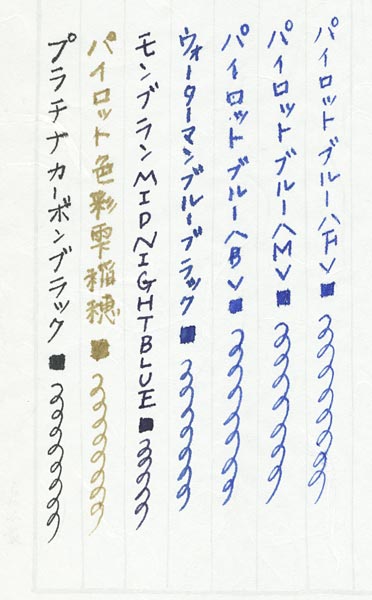 パイロットブルー〈F〉
パイロットブルー〈M〉
パイロットブルー〈B〉
ウォーターマンブルーブラック
モンブランMIDNIGHTBLUE
パイロット色彩雫稲穂
プラチナカーボンブラック